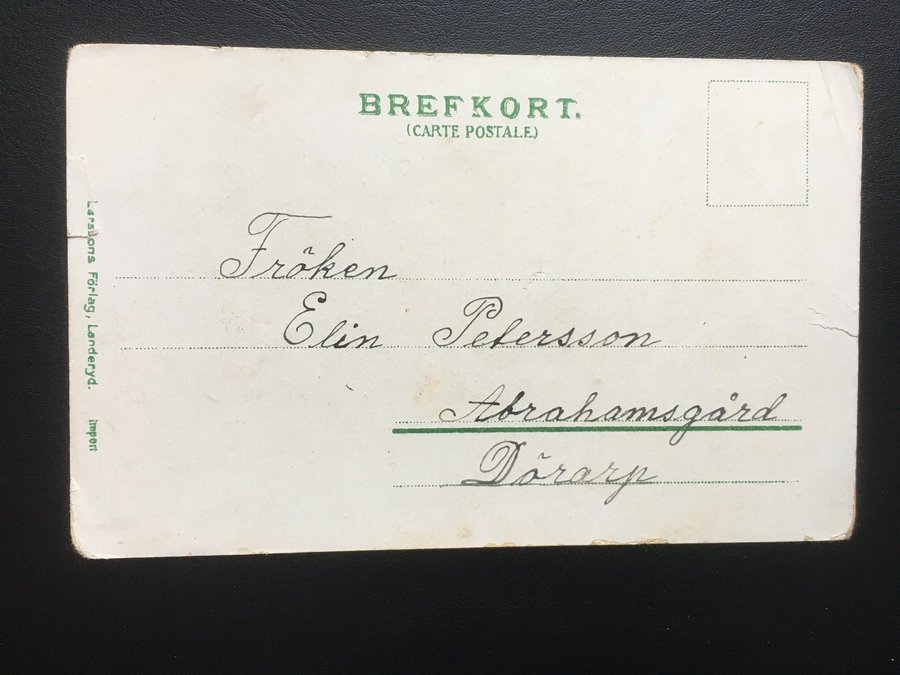 BREFKORT.
(CARTE POSTALE.)
Fröken
Elin Petersson
Abrahamsgård
Dörarp
Larssons Förlag, Landeryd. import